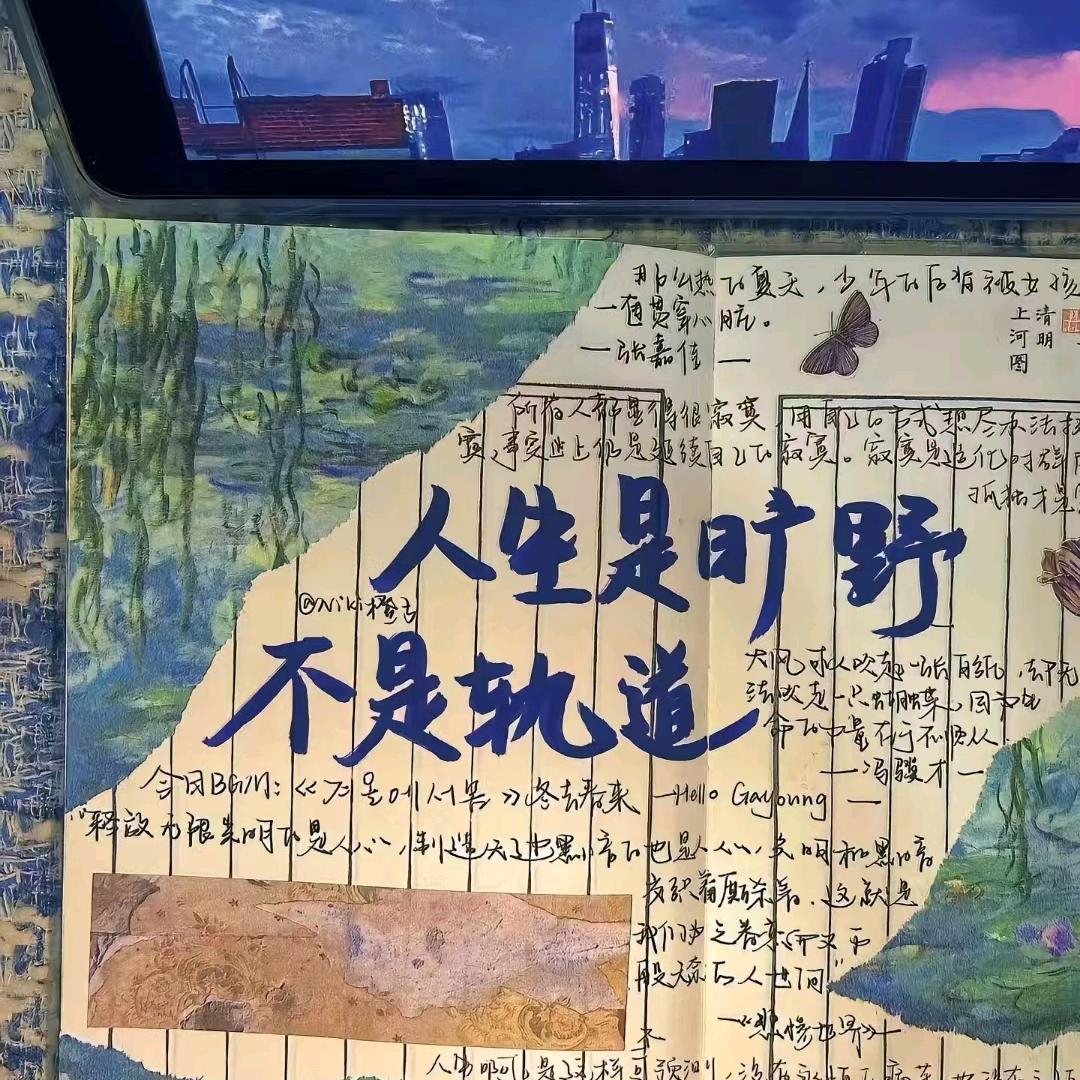 那么热的夏天，少年的后背被女孩
一通贯穿心脏。
—张嘉佳—
清明
上河图
所有人都显得很寂寞，用自己的方式想尽办法
寞，事实上仍是延续自己的寂寞。寂寞是造化对群
孤独才是
人生是旷野
@Niki橙子
不是轨道
大风可以吹起一张白纸，却无
法吹走一只蝴蝶，因为生
命的力量在于不顺从
—冯骥才—
今日BGM：《겨울에서 봄》冬去春来 —Hello Gayoung—
"释放无限光明的是人心，制造无边黑暗的也是人心，光明和黑暗
交织着厮杀着，这就是
我们为之眷恋而又万
般无奈的人世间"
—《悲惨世界》—
人生
是这样